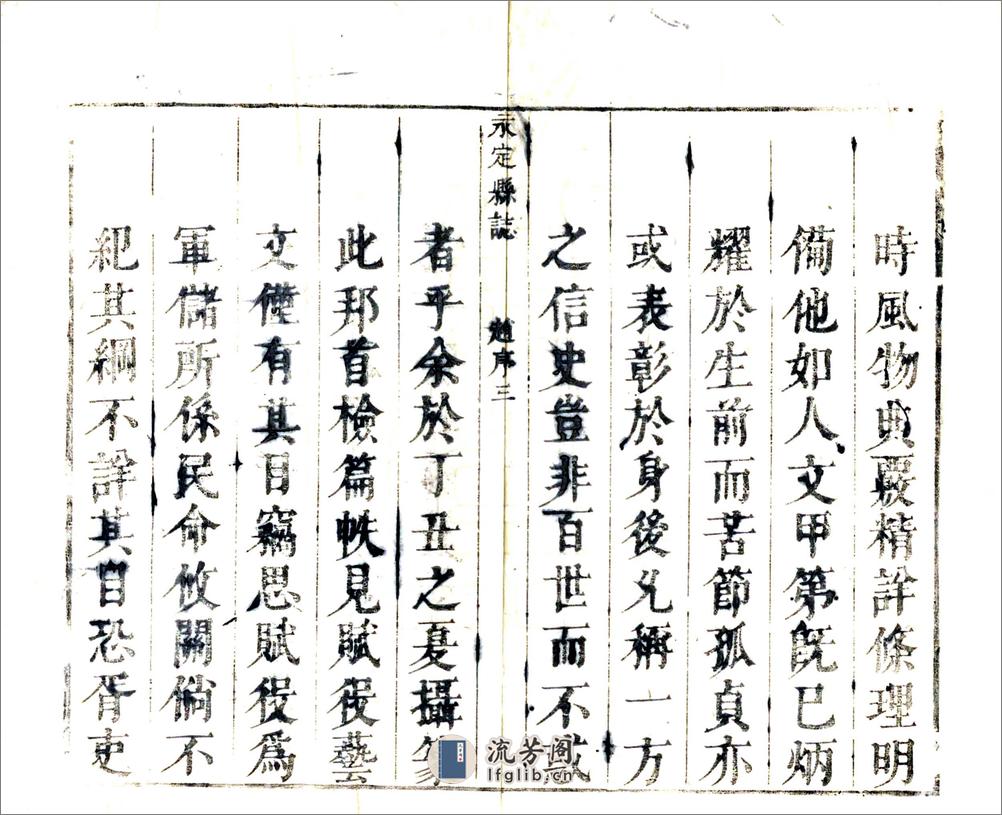 時風物典覈精詳條理明
備他如人文甲第既已炳
耀於生前而苦節孤貞亦
或表彰於身後允稱一方
之信史豈非百世而不
永定縣誌 趙序三
者乎余於丁丑之夏攝篆
此邦首檢篇帙見賦役藝
文僅有其目竊思賦役爲
軍儲所係民命攸關倘不
紀其綱不詳其目恐胥吏
流芳阁
lfglib.cn